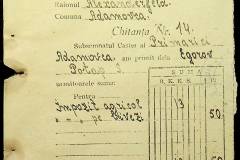 Raionul Alexanderfeld.
Comuna Adamovca.
Chitanța Nr. 14.
Subsemnatul Casier al Primăriei
Adamovca am primit dela Egorov
Potap I.
următoarele sume:
SUMA
R.K.K.S.
Pentru
Impozit agricol 13 50
" " pe
50